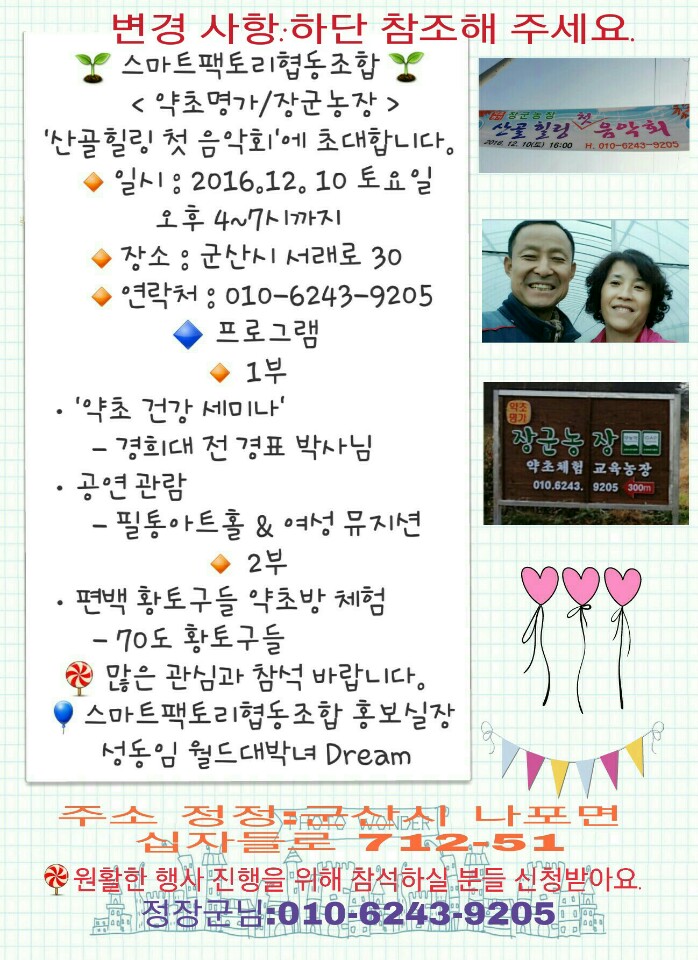 변경 사항:하단 참조해 주세요.
스마트팩토리협동조합
< 약초명가/장군농장 >
'산골힐링 첫 음악회'에 초대합니다.
일시 : 2016.12. 10 토요일
오후 4~7시까지
장소 : 군산시 서래로 30
연락처 : 010-6243-9205
프로그램
1부
• '약초 건강 세미나'
- 경희대 전 경표 박사님
• 공연 관람
- 필통아트홀 & 여성 뮤지션
2부
• 편백 황토구들 약초방 체험
- 70도 황토구들
많은 관심과 참석 바랍니다.
스마트팩토리협동조합 홍보실장
성동임 월드대박녀 Dream
장군농장
산골힐링 첫 음악회
2016. 12. 10(토) 16:00 H. 010-6243-9205
약초
명가
장군농장
약초체험 교육농장
010.6243. 9205 300m
주소 정정:군산시 나포면
십자들로 712-51
PHOTO WONDER
원활한 행사 진행을 위해 참석하실 분들 신청받아요.
정장군님:010-6243-9205